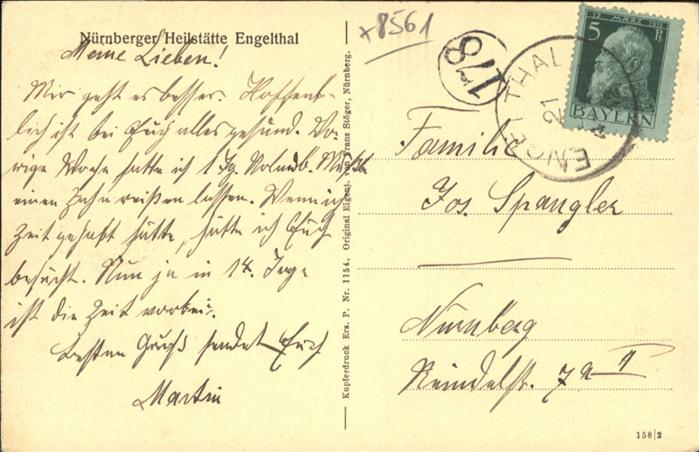 Nürnberger Heilstätte Engelthal
Meine Lieben!
Mir geht es besser. Hoffent-
lich ist bei Euch alles gesund. Vo-
rige Woche hatte ich 1 Tg.
einen Zahn reißen lassen. Wenn ich
Zeit gehabt hätte, hätte ich Euch
besucht. Nun ja in 14. Tage
ist die Zeit vorbei.
Besten Gruß sendet Euch
Martin
Kupferdruck Ers. P. Nr. 1154. Original Eigent. von Franz Stöger, Nürnberg.
x 8561
178
12 MÄRZ 1911
5 Pf.
BAYERN
ENGELTHAL
21
Familie
Jos. Spangler
Nürnberg
Reindelstr. 7a II
158|2